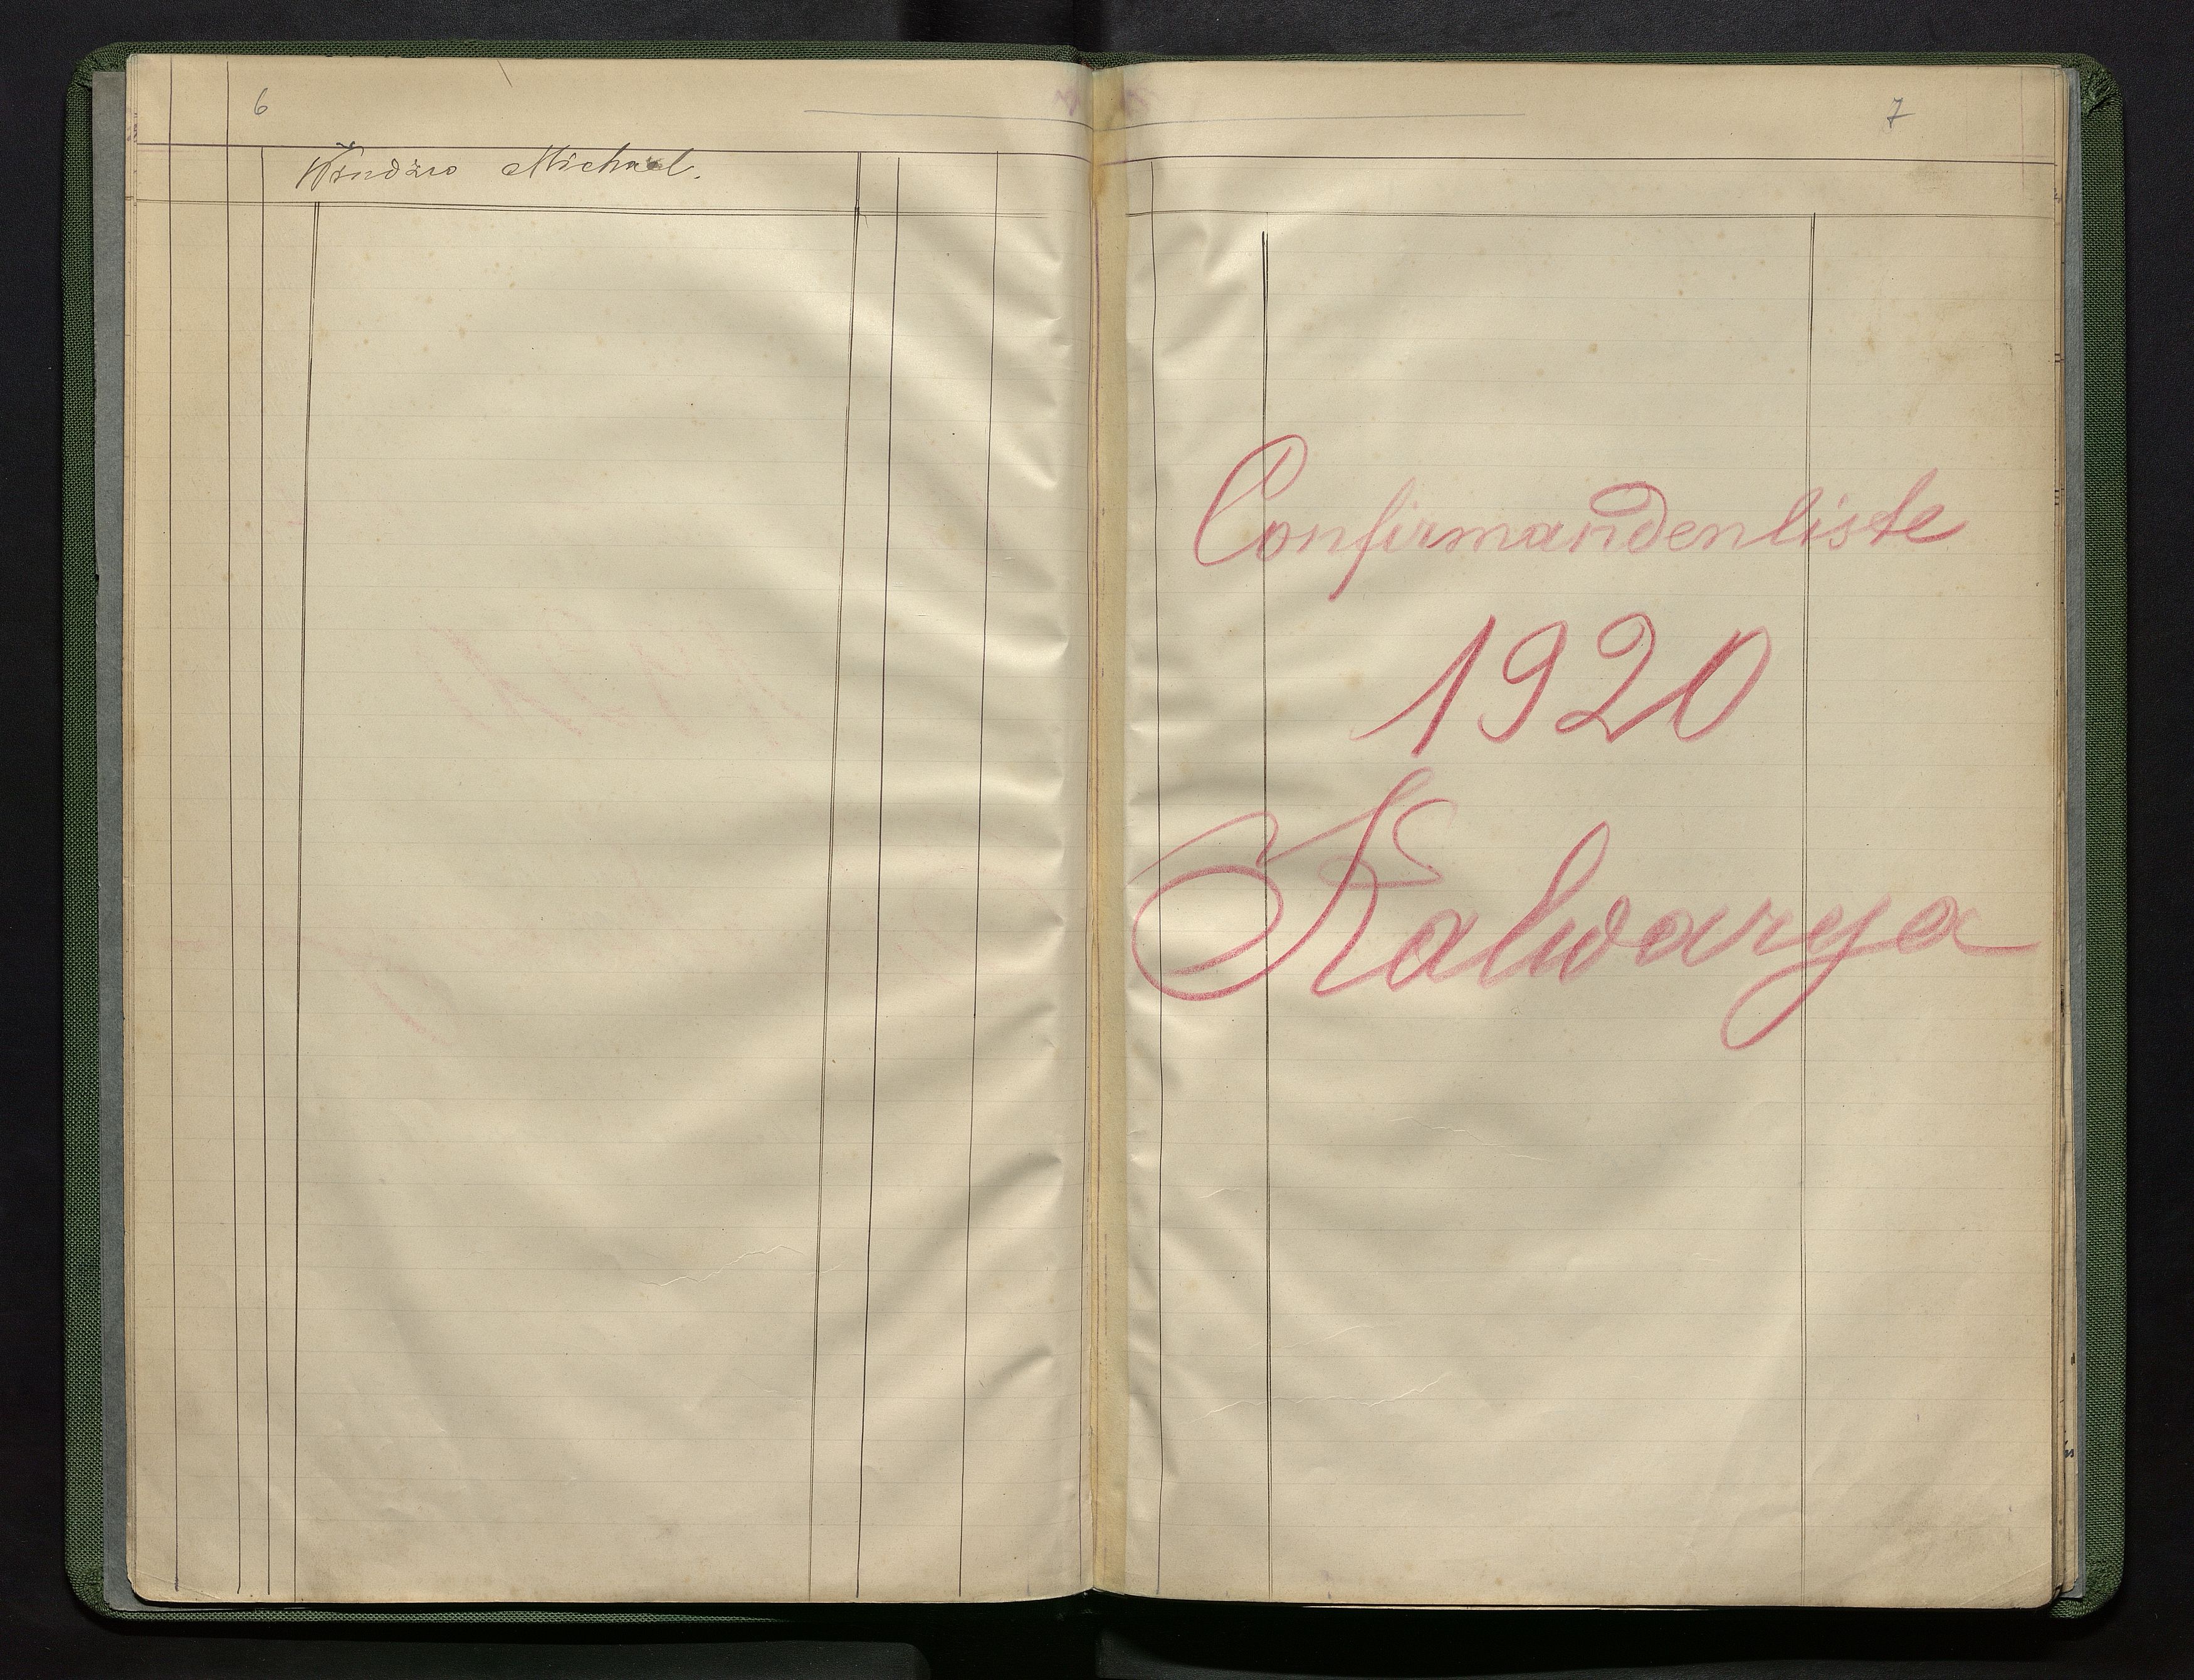 6
Michael.
7
Confirmandenliste
1920
Kalwarya